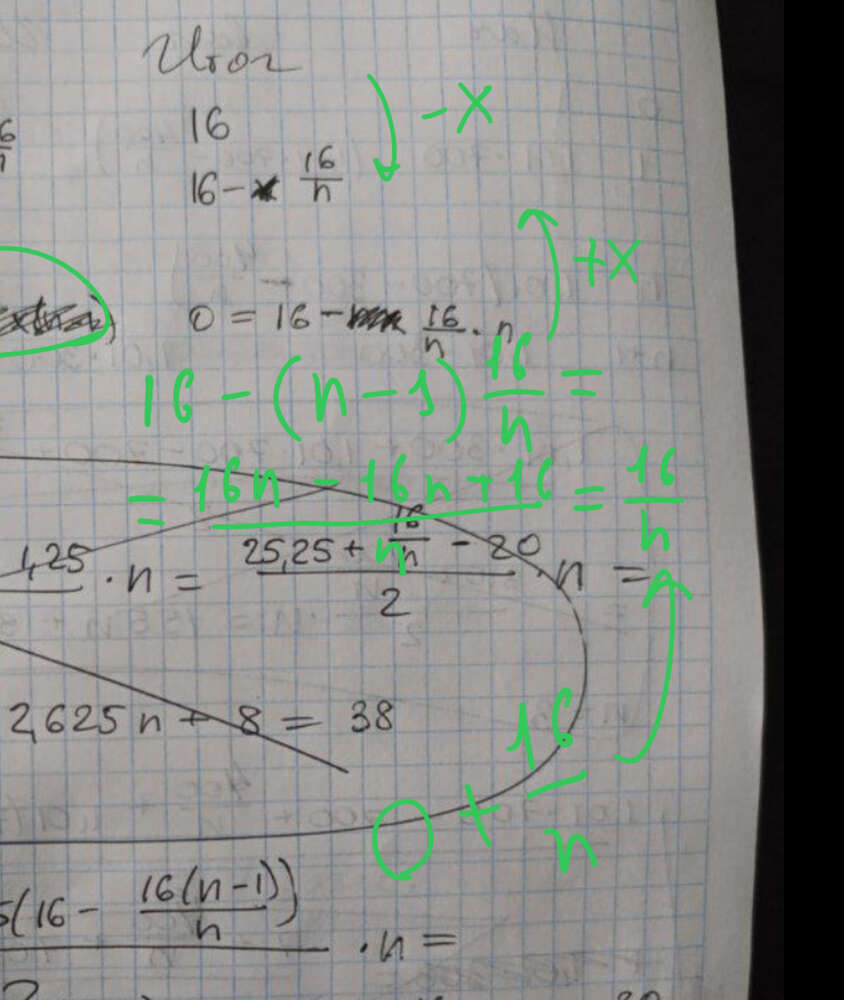 Итог
16
- x
16 - 16/n
+ x
0 = 16 - 16/n · n
16 - (n - 1) 16/n =
= 16n - 16n + 16 / n = 16/n
1,25 · n = 25,25 + 16/n - 20 / 2 · n =
2,625 n + 8 = 38
0 + 16/n
(16 - 16(n-1)/n) · n =